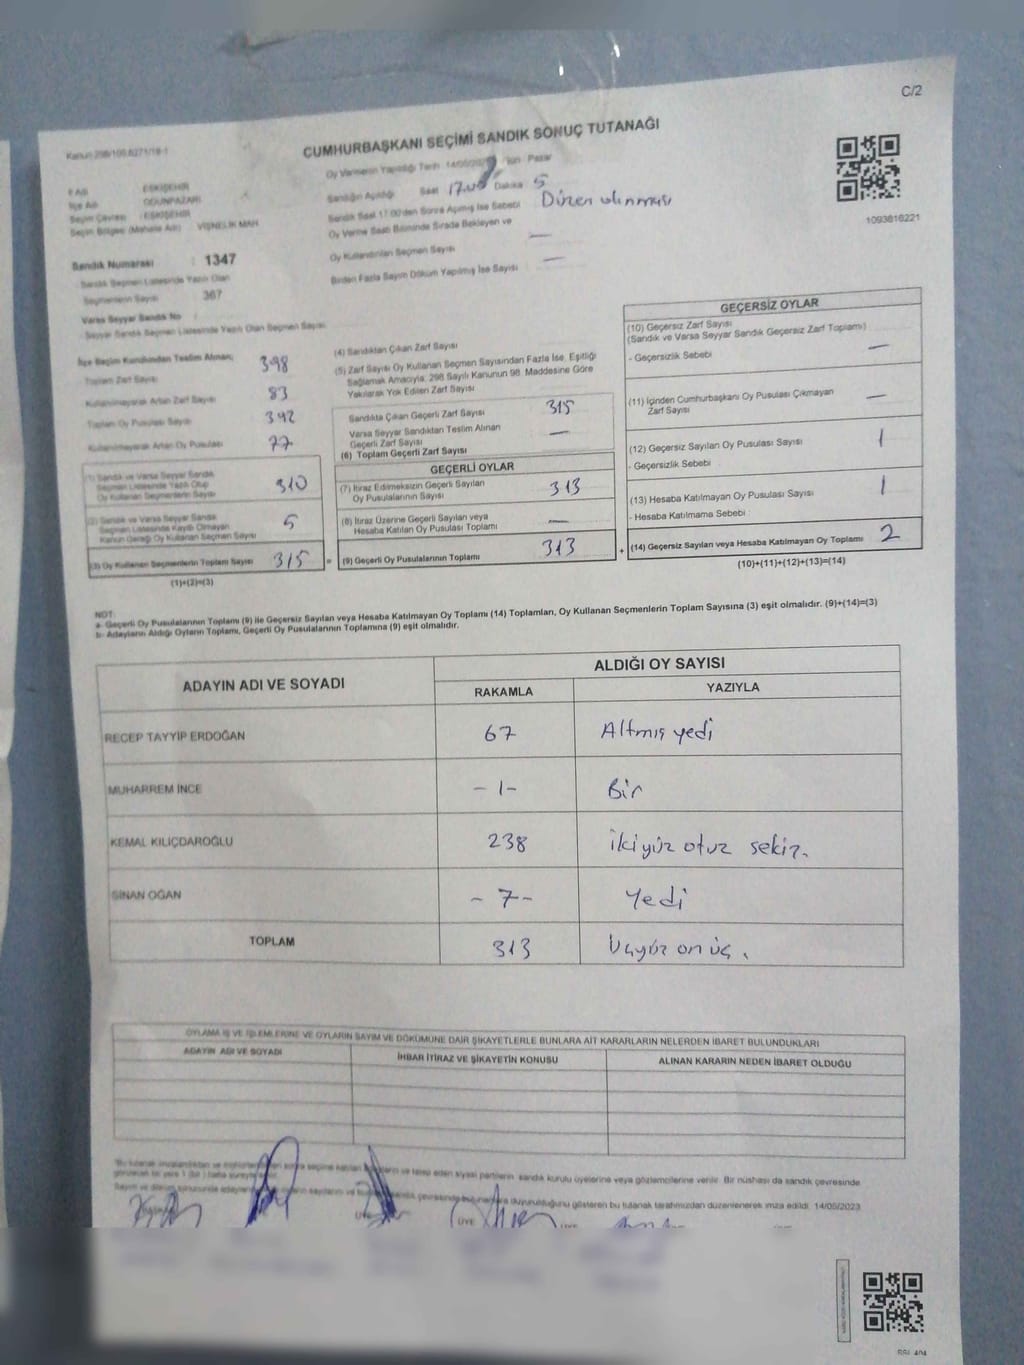 C/2
CUMHURBAŞKANI SEÇİMİ SANDIK SONUÇ TUTANAĞI
Oy Vermenin Yapıldığı Tarih 14/05/2023 Pazar
İl Adı ESKİŞEHİR
İlçe Adı ODUNPAZARI
Seçim Çevresi : ESKİŞEHİR
Seçim Bölgesi (Mahalle Adı) VİŞNELİK MAH.
Sandığın Açıldığı Saat 17.00 Dakika 5
Sandık Saat 17:00'den Sonra Açılmış İse Sebebi Düzen alınması
Oy Verme Saati Bitiminde Sırada Bekleyen ve
Oy Kullandırılan Seçmen Sayısı —
Birden Fazla Sayım Döküm Yapılmış İse Sayısı —
1093816221
Sandık Numarası : 1347
Sandık Seçmen Listesinde Yazılı Olan
Seçmenlerin Sayısı 367
Varsa Seyyar Sandık No :
Seyyar Sandık Seçmen Listesinde Yazılı Olan Seçmen Sayısı
İlçe Seçim Kurulundan Teslim Alınan;
Toplam Zarf Sayısı 398
Kullanılmayarak Artan Zarf Sayısı 83
Toplam Oy Pusulası Sayısı 392
Kullanılmayarak Artan Oy Pusulası 77
(1) Sandık ve Varsa Seyyar Sandık
Seçmen Listesinde Yazılı Olup
Oy Kullanan Seçmenlerin Sayısı 310
(2) Sandık ve Varsa Seyyar Sandık
Seçmen Listesinde Kayıtlı Olmayan
Kanun Gereği Oy Kullanan Seçmen Sayısı 5
(3) Oy Kullanan Seçmenlerin Toplam Sayısı 315
(1)+(2)=(3)
(4) Sandıktan Çıkan Zarf Sayısı
(5) Zarf Sayısı Oy Kullanan Seçmen Sayısından Fazla İse, Eşitliği
Sağlamak Amacıyla, 298 Sayılı Kanunun 98. Maddesine Göre
Yakılarak Yok Edilen Zarf Sayısı
Sandıkta Çıkan Geçerli Zarf Sayısı 315
Varsa Seyyar Sandıktan Teslim Alınan
Geçerli Zarf Sayısı —
(6) Toplam Geçerli Zarf Sayısı
GEÇERLİ OYLAR
(7) İtiraz Edilmeksizin Geçerli Sayılan
Oy Pusulalarının Sayısı 313
(8) İtiraz Üzerine Geçerli Sayılan veya
Hesaba Katılan Oy Pusulası Toplamı —
= (9) Geçerli Oy Pusulalarının Toplamı 313
GEÇERSİZ OYLAR
(10) Geçersiz Zarf Sayısı
(Sandık ve Varsa Seyyar Sandık Geçersiz Zarf Toplamı)
- Geçersizlik Sebebi —
(11) İçinden Cumhurbaşkanı Oy Pusulası Çıkmayan
Zarf Sayısı —
(12) Geçersiz Sayılan Oy Pusulası Sayısı 1
- Geçersizlik Sebebi
(13) Hesaba Katılmayan Oy Pusulası Sayısı 1
- Hesaba Katılmama Sebebi :
+ (14) Geçersiz Sayılan veya Hesaba Katılmayan Oy Toplamı 2
(10)+(11)+(12)+(13)=(14)
NOT:
a- Geçerli Oy Pusulalarının Toplamı (9) ile Geçersiz Sayılan veya Hesaba Katılmayan Oy Toplamı (14) Toplamları, Oy Kullanan Seçmenlerin Toplam Sayısına (3) eşit olmalıdır. (9)+(14)=(3)
b- Adayların Aldığı Oyların Toplamı, Geçerli Oy Pusulalarının Toplamına (9) eşit olmalıdır.
ADAYIN ADI VE SOYADI
ALDIĞI OY SAYISI
RAKAMLA YAZIYLA
RECEP TAYYİP ERDOĞAN 67 Altmış yedi
MUHARREM İNCE -1- Bir
KEMAL KILIÇDAROĞLU 238 ikiyüz otuz sekiz.
SİNAN OĞAN -7- Yedi
TOPLAM 313 Üçyüz on üç.
OYLAMA İŞ VE İŞLEMLERİNE VE OYLARIN SAYIM VE DÖKÜMÜNE DAİR ŞİKAYETLERLE BUNLARA AİT KARARLARIN NELERDEN İBARET BULUNDUKLARI
ADAYIN ADI VE SOYADI İHBAR İTİRAZ VE ŞİKAYETİN KONUSU ALINAN KARARIN NEDEN İBARET OLDUĞU
siyasi partilerin sandık kurulu üyelerine veya gözlemcilerine verilir. Bir nüshası da sandık çevresinde
gösteren bu tutanak tarafımızdan düzenlenerek imza edildi. 14/05/2023
ÜYE